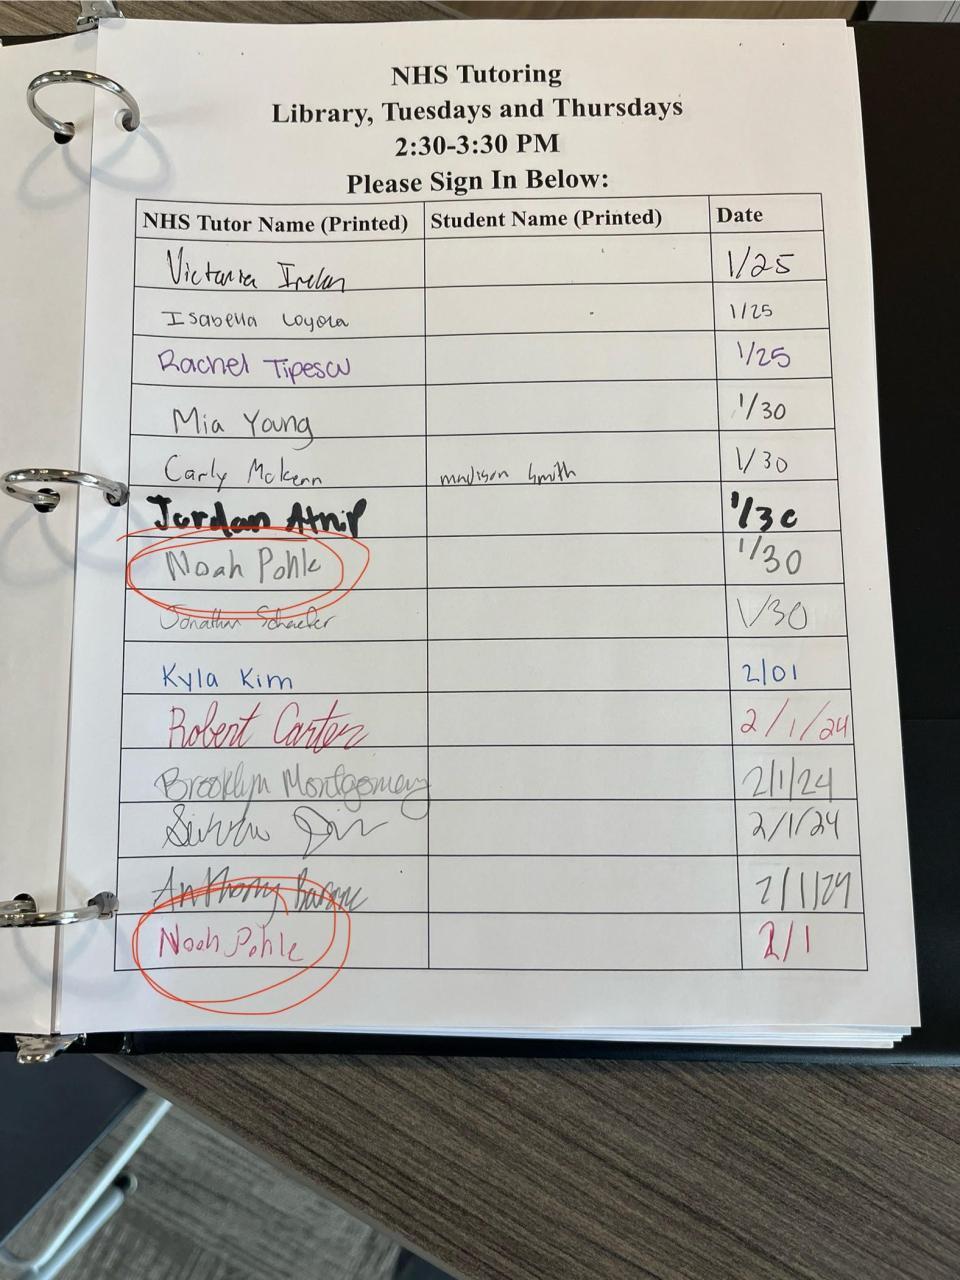 NHS Tutoring
Library, Tuesdays and Thursdays
2:30-3:30 PM
Please Sign In Below:
NHS Tutor Name (Printed) Student Name (Printed) Date
Victoria 1/25
Isabella Loyola 1/25
Rachel Tipescu 1/25
Mia Young 1/30
Carly McKenn madison Smith 1/30
Jordan Atnip 1/30
Noah Pohle 1/30
Jonathan Schaefer 1/30
Kyla Kim 2/01
Robert Carter 2/1/24
Brooklyn Montgomery 2/1/24
2/1/24
Anthony 2/1/24
Noah Pohle 2/1